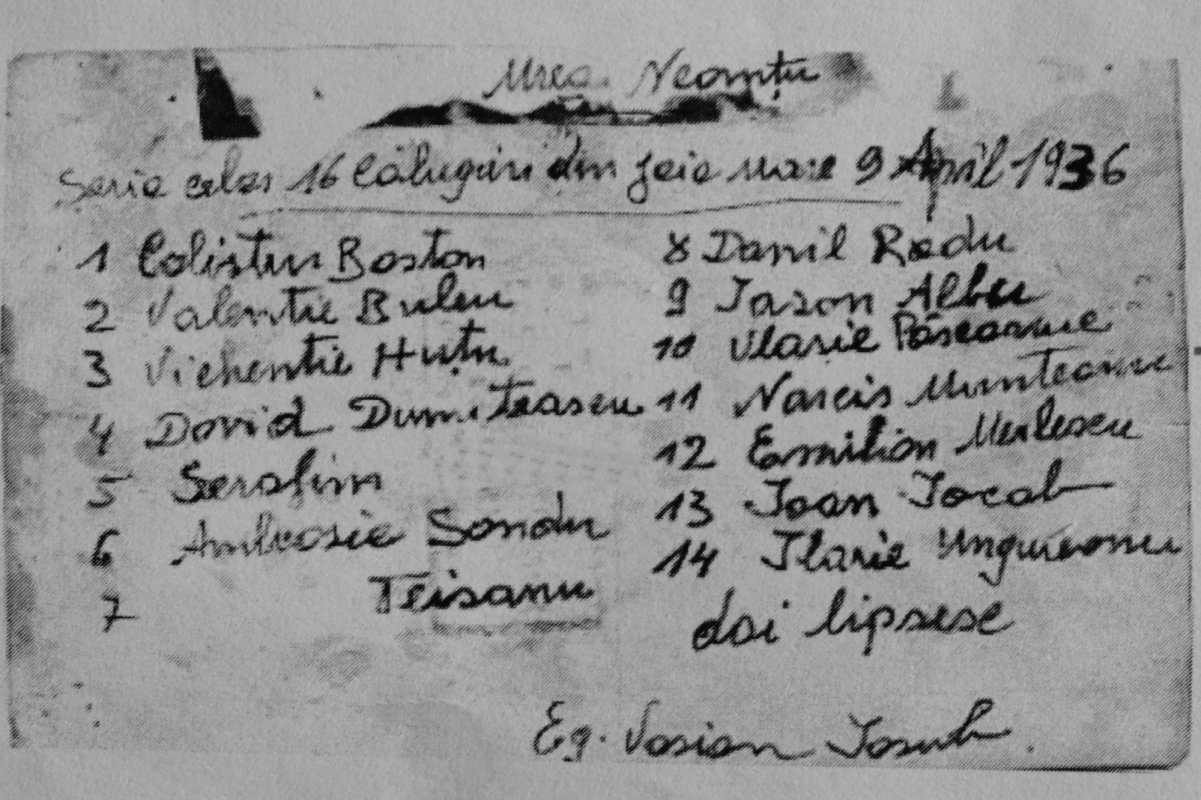 Mrea. Neamțu
Serie celor 16 Călugări din joie mare 9 April 1936
1 Calistru Boston
2 Valentie Buleu
3 Vichentie Huțu
4 David Dumitrascu
5 Serafim
6 Ambrosie Sandu
7 Teisanu
8 Danil Radu
9 Jason Albu
10 Ilarie Păscaruie
11 Narcis Munteanu
12 Emilian Merlescu
13 Ioan Iacob
14 Ilarie Ungureanu
doi lipsesc
Eg. Vasian Iosub